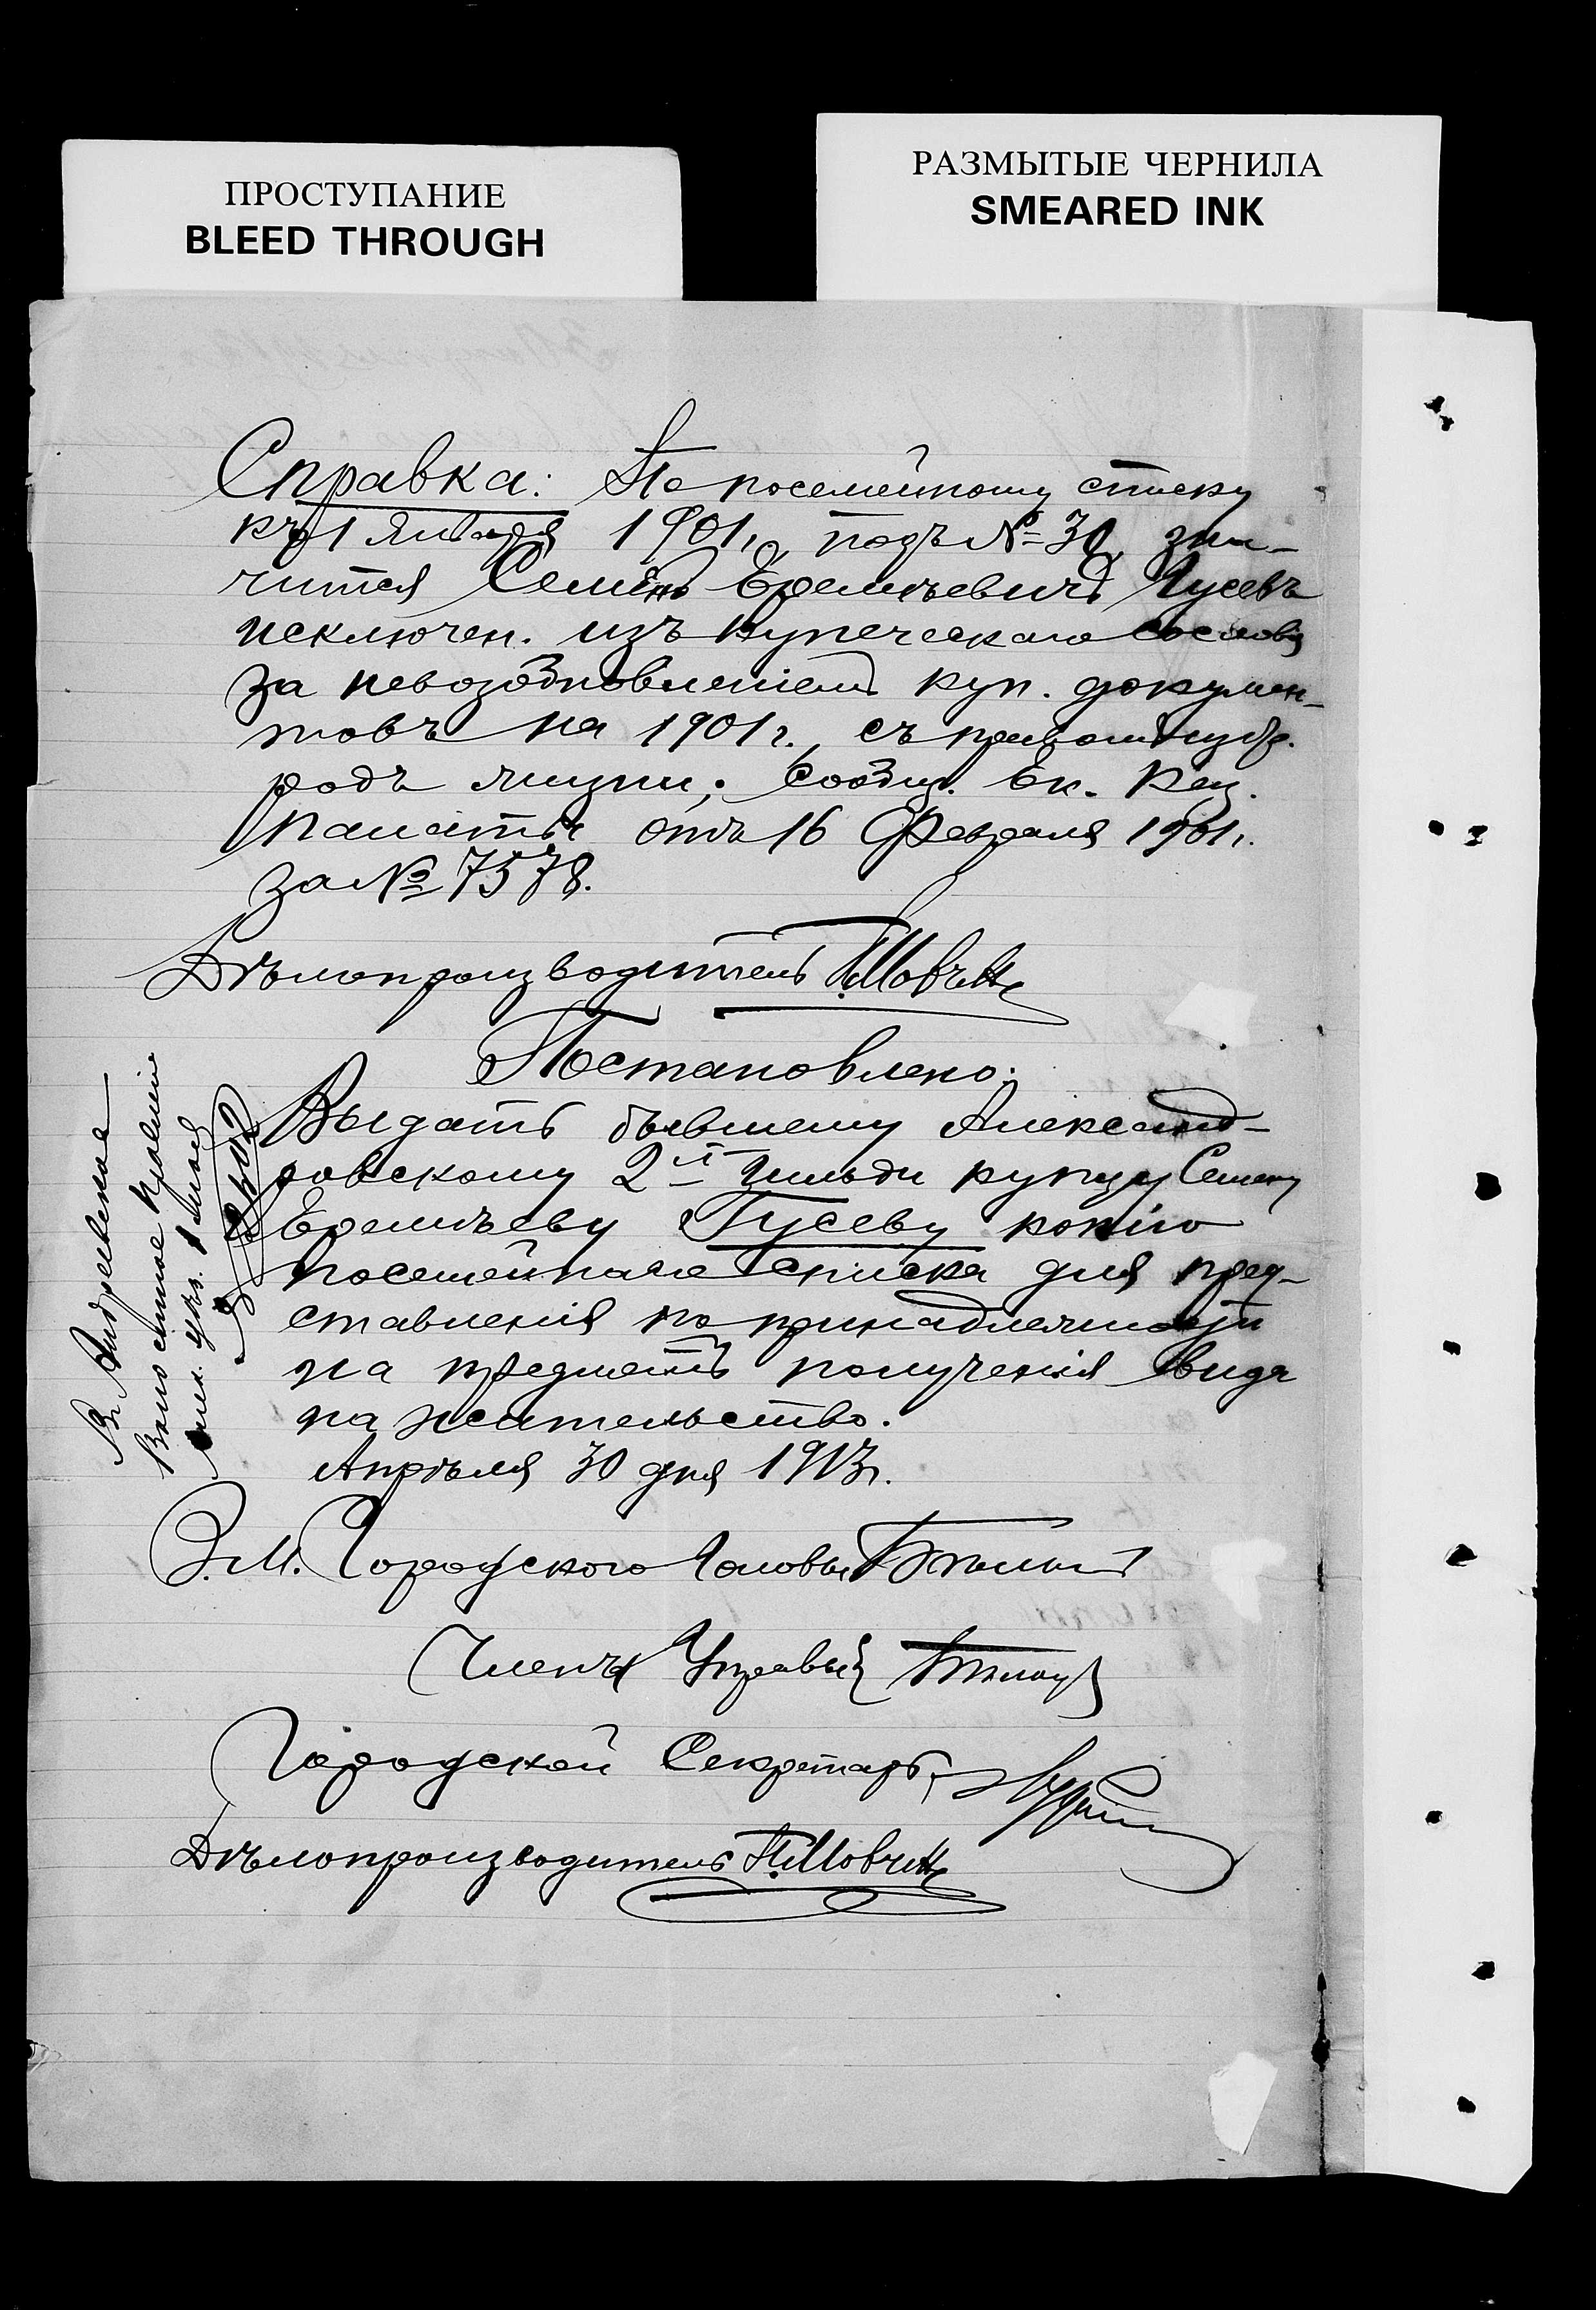 ПРОСТУПАНИЕ
BLEED THROUGH
РАЗМЫТЫЕ ЧЕРНИЛА
SMEARED INK
Справка: По посемейному списку
къ 1 Января 1901 г. подъ № 30, зна-
чится Семёнъ Еремѣевичъ Гусевъ
исключен. изъ купеческаго сословія
за невозобновленіемъ куп. докумен-
товъ на 1901 г., съ правомъ избр.
родъ жизни; сообщ. Ек. Каз.
Палаты отъ 16 Февраля 1901 г.
за № 7578.
Дѣлопроизводитель
Постановлено:
Выдать бывшему Александ-
ровскому 2й гильдіи купцу Семену
Еремѣеву Гусеву копію
посемейнаго списка для пред-
ставленія по принадлежности
на предметъ полученія вида
на жительство.
Апрѣля 30 дня 1913 г.
З. М. Городского Головы
Члены Управы
Городской Секретарь
Дѣлопроизводитель
Въ Андреевское
Волостное Правленіе